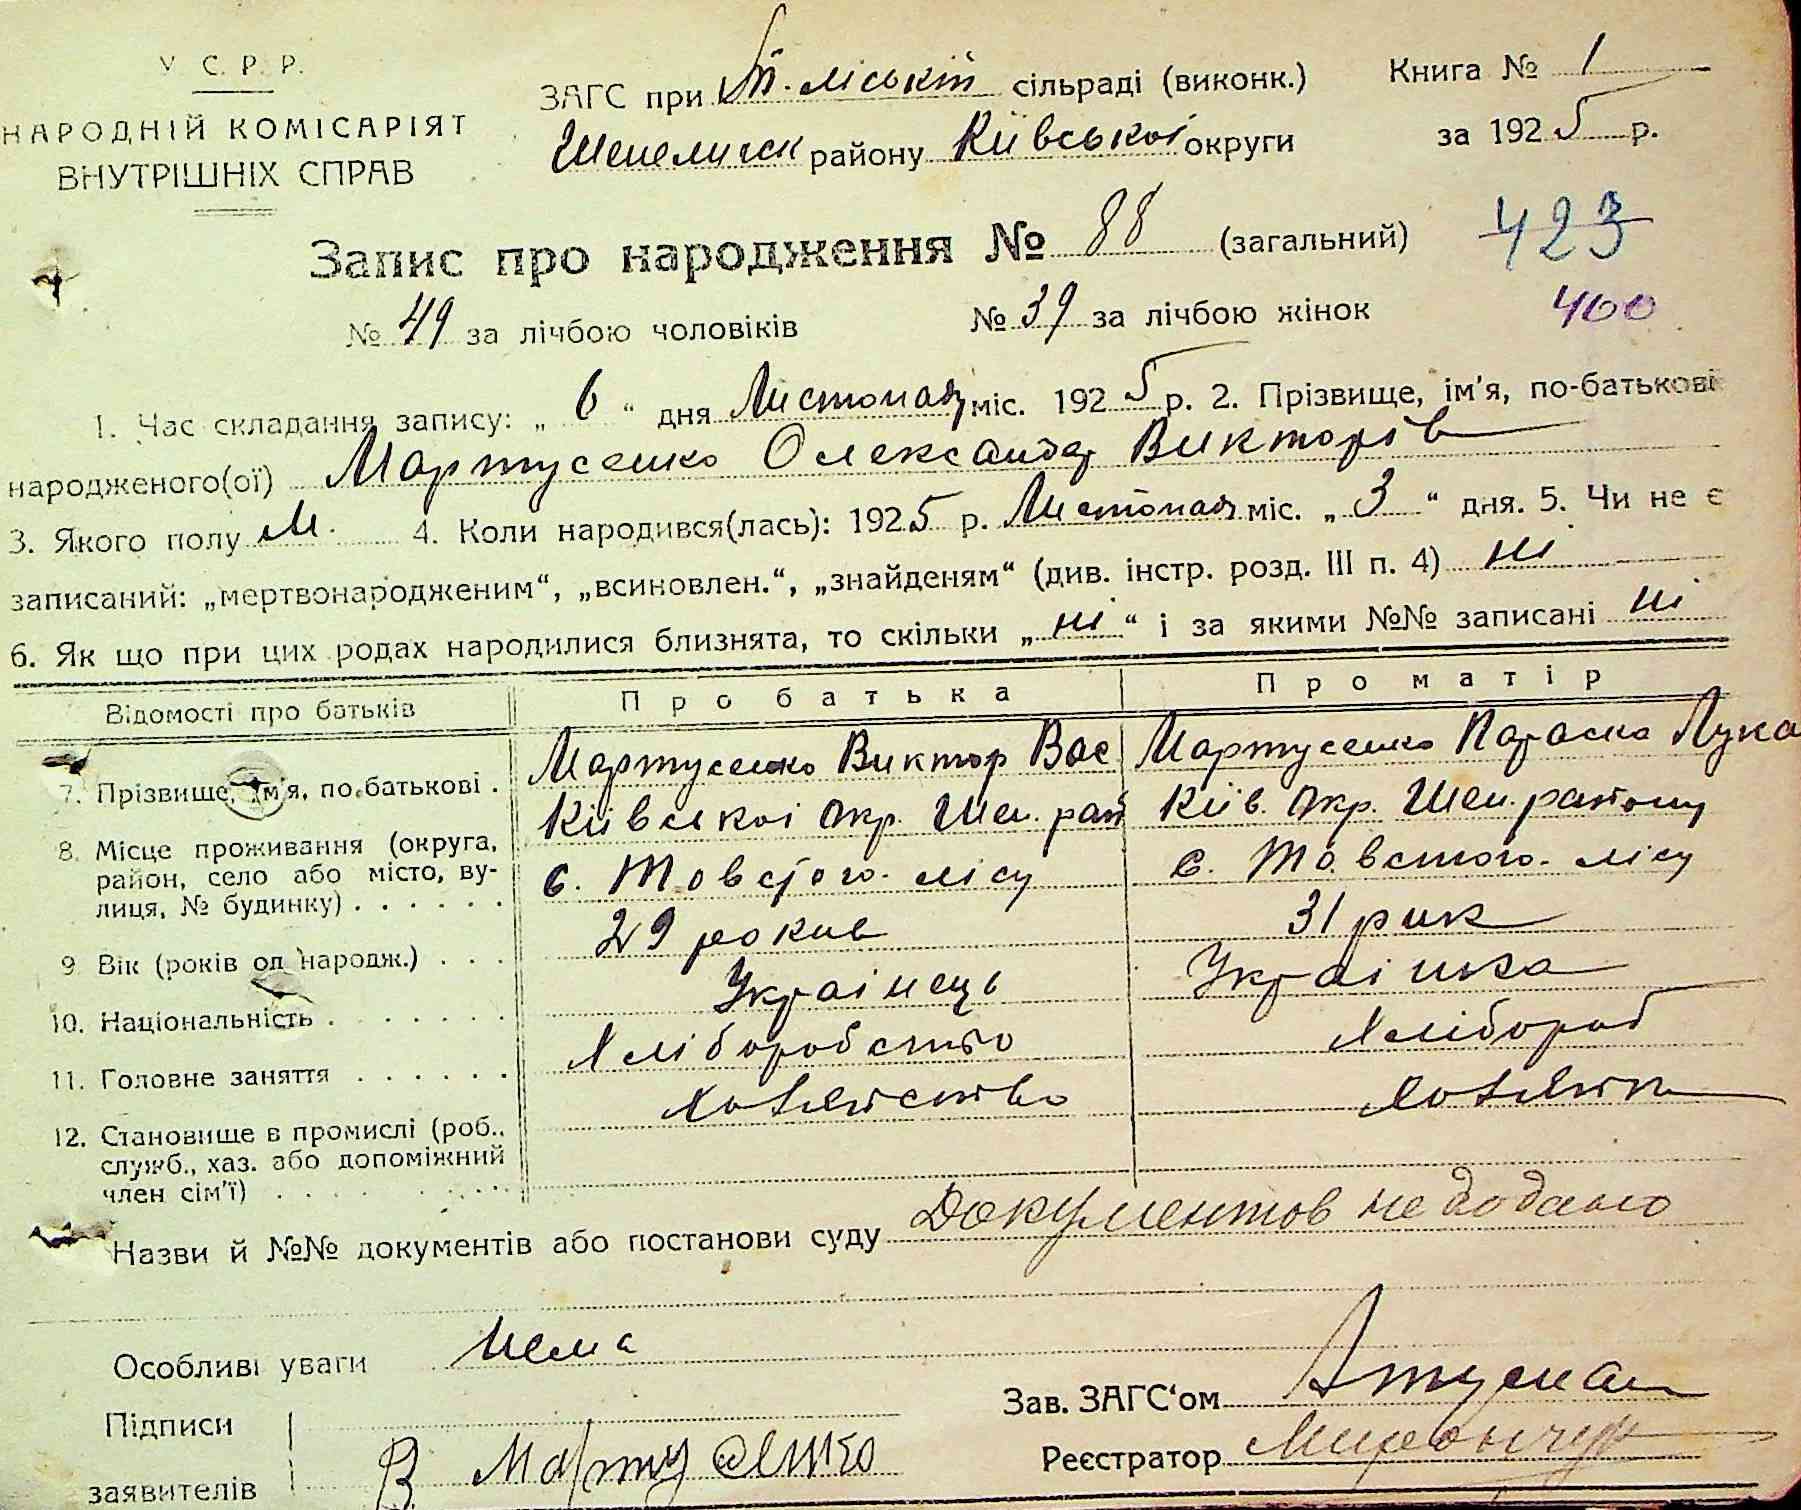 У С. Р. Р.
НАРОДНІЙ КОМІСАРІЯТ
ВНУТРІШНІХ СПРАВ
ЗАГС при Т.-ліській сільраді (виконк.)
Шепелицьк району Київської округи
Книга № 1
за 1925 р.
Запис про народження № 88 (загальний)
423
№ 49 за лічбою чоловіків № 39 за лічбою жінок
400
1. Час складання запису: „ 6 “ дня Листопад міс. 1925 р. 2. Прізвище, ім'я, по-батькові
народженого(ої) Мартусенко Олександр Викторів
3. Якого полу М. 4. Коли народився(лась): 1925 р. Листопад міс. „ 3 “ дня. 5. Чи не є
записаний: „мертвонародженим“, „всиновлен.“, „знайденям“ (див. інстр. розд. III п. 4) ні
6. Як що при цих родах народилися близнята, то скільки „ ні “ і за якими №№ записані ні
Відомості про батьків Про батька Про матір
7. Прізвище, ім'я, по батькові . Мартусенко Виктор Вас Мартусенко Параска Лука
8. Місце проживання (округа, район, село або місто, вулиця, № будинку) . . . . . . Київської окр. Шеп. рай Київ. окр. Шеп. району
с. Товстого-лісу с. Товстого-лісу
9 Вік (років од народж.) . . . 29 років 31 рик
10. Національність . . . . . . . Украінець Украінка
11. Головне заняття . . . . . . Хліборобство Хлібороб
12. Становище в промислі (роб., служб., хаз. або допоміжний член сім'ї) . . . . . . . . Хозяйство
Назви й №№ документів або постанови суду Документов не додано
Особливі уваги Нема
Зав. ЗАГС'ом
Підписи
заявителів В Мартусенко
Реєстратор Мирончук